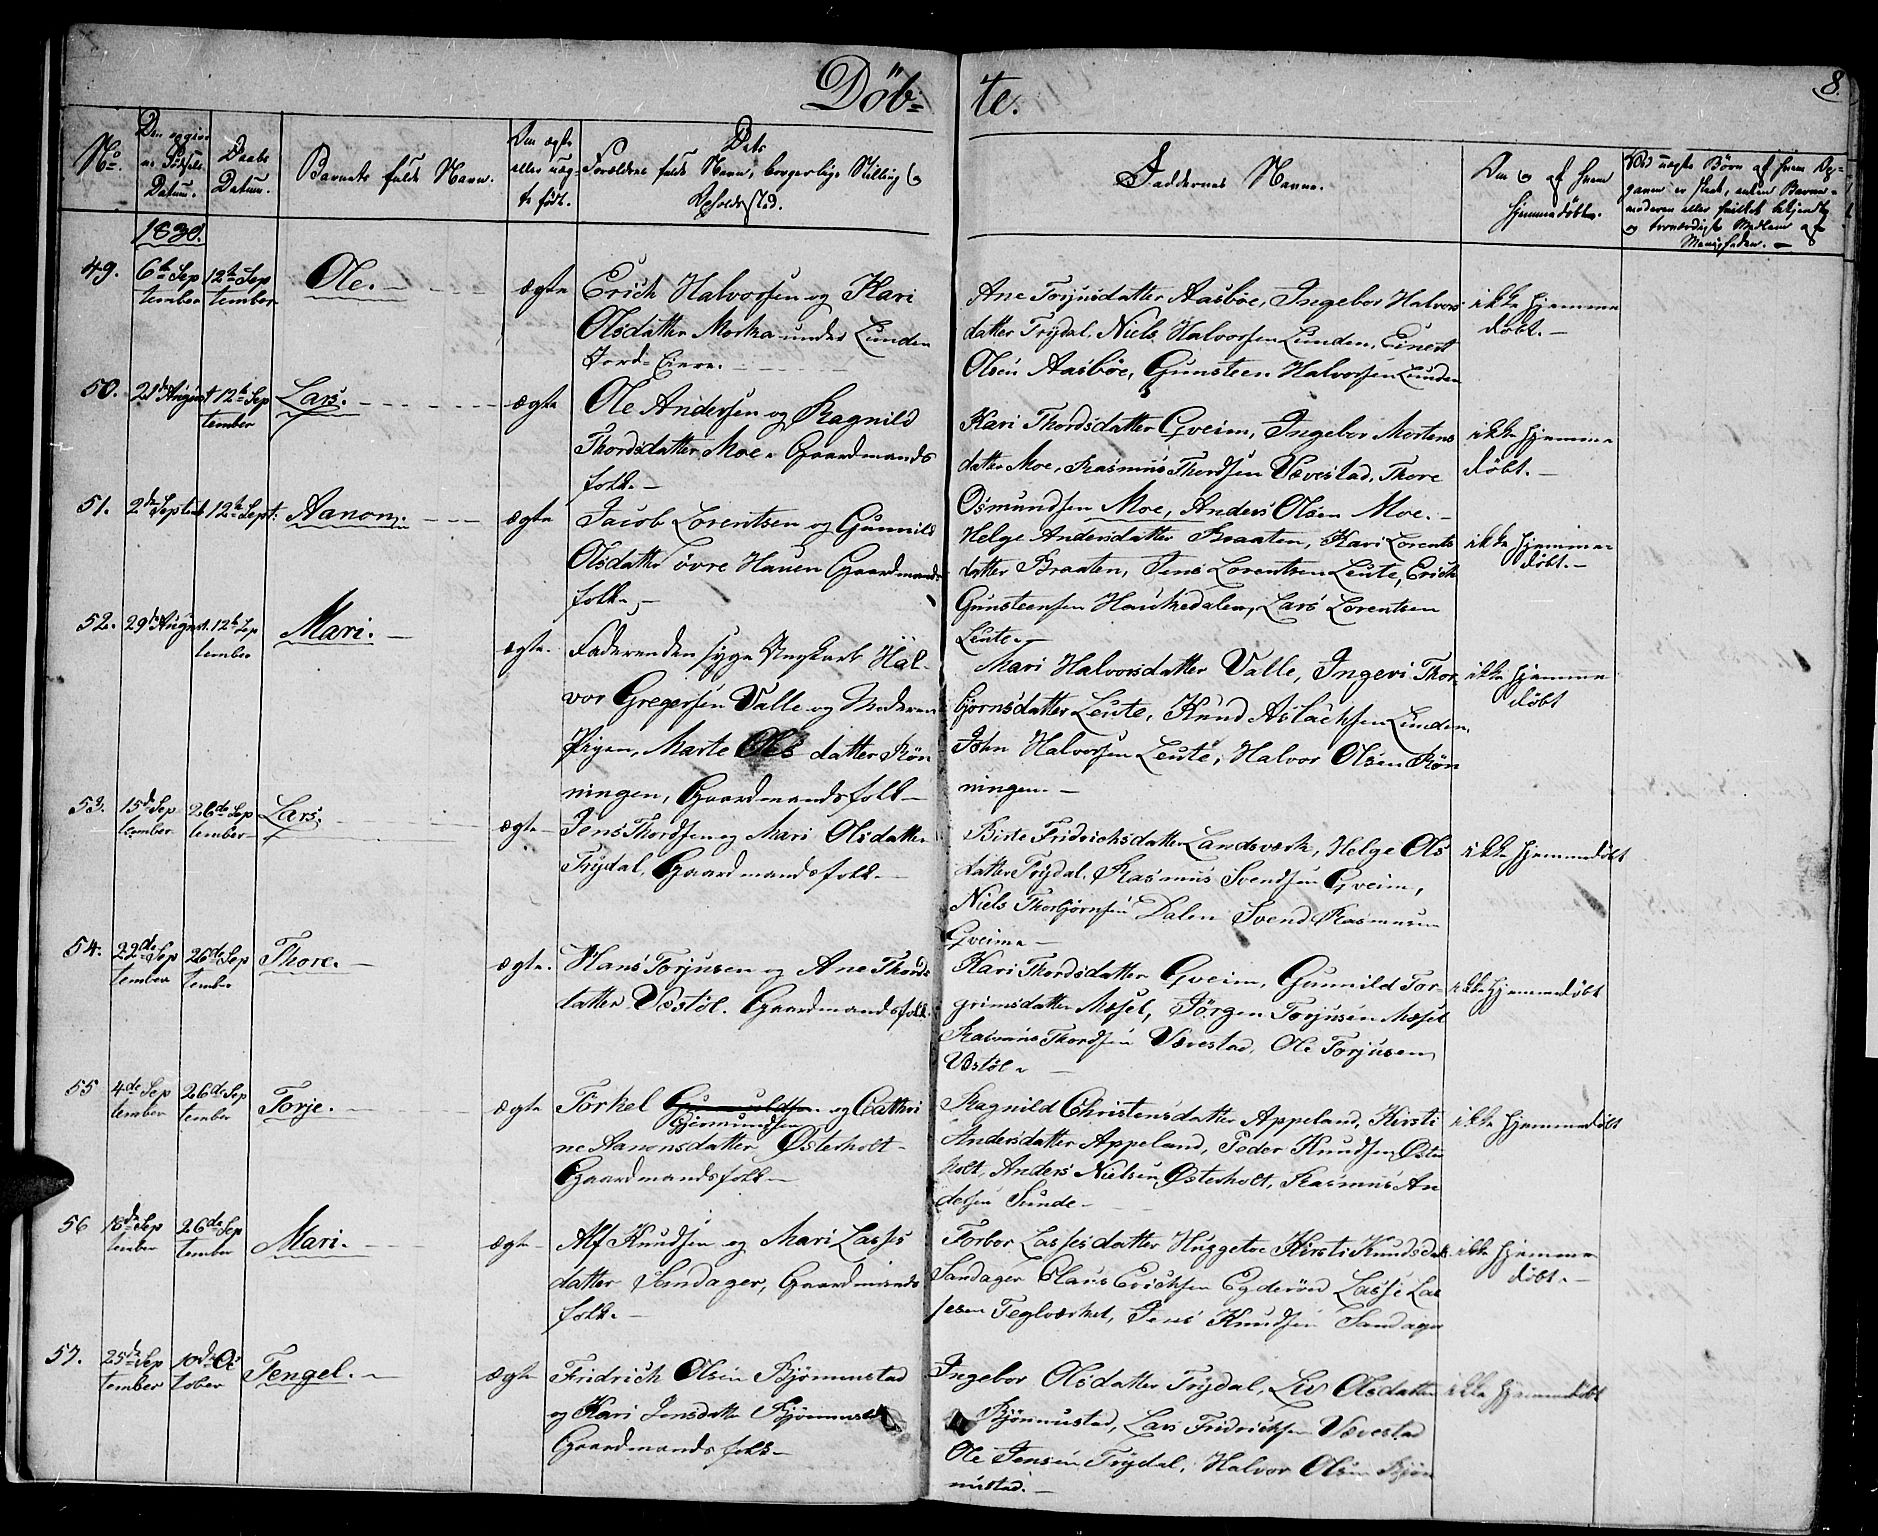 Döb=te.
8.
No.
Den opgivne Födsels Datum.
Daabs Datum.
Barnets fulde Navn.
Om ægte eller uægte født.
Dets Forældres fulde Navn, borgerlige Stilling og Opholdssted.
Faddernes Navne.
Om og af hvem hjemmedøbt.
1830.
49.
6te September
12te September
Ole.
ægte
Erich Halvorsen og Kari
Olsdatter Morka under Lunden
Jord-Eiere.
Ane Torjusdatter Aasböe, Ingebor Halvors
datter Trydal, Niels Halvorsen Lunden, Einert
Olsen Aasböe, Gunsteen Halvorsen Lunden
ikke hjemme
døbt.
50.
21de August
12te September
Lars.
ægte
Ole Andersen og Ragnild
Thordsdatter Moe. Gaardmands
folk.
Kari Thordsdatter Gveim, Ingebor Mortens
datter Moe, Rasmus Thordsen Vævestad, Thore
Osmundsen Moe, Anders Olsen Moe.
ikke hjemme
døbt.
51.
2de Septbr
12te Sept:
Aanon.
ægte
Jacob Lorentsen og Gunnild
Olsdatter övre Hauen Gaardmands
folk.
Helge Andersdatter Braaten, Kari Lorents
datter Braaten, Jens Lorentsen Leute, Erich
Gunsteensen Haukedalen, Lars Lorentsen
Leute.
ikke hjemme
døbt.
52.
29de August.
12te September
Mari.
ægte.
Faderen den syge Ungkarl Hal-
vor Gregersen Valle og Moderen
Pigen, Marte Ols datter Rön
ningen, Gaardmandsfolk
Mari Halvorsdatter Valle, Ingeri Thor
björnsdatter Leute, Knud Aslachsen Lunden,
John Halvorsen Leute, Halvor Olsen Rön
ningen.
ikke hjemme
døbt
53.
15de September
26de September
Lars.
ægte
Jens Thordsen og Mari Olsdatter
Trydal, Gaardmandsfolk.
Birte Fridrichsdatter Landsværk, Helge Ols
datter Trydal, Rasmus Svendsen Gveim,
Niels Thorbjørnsen Dalen Svend Rasmusen
Gveim
ikke hjemmedøbt
54.
22de September
26de September
Thore.
ægte.
Hans Torjusen og Ane Thords
datter Vestöl. Gaardmandsfolk.
Kari Thordsdatter Gveim, Gunnild Tor-
grimsdatter Mæsel, Jörgen Torjusen Mæsel
Rasmus Thordsen Vævestad, Ole Torjusen
Vestöl
ikke hjemmedøbt
55
4de September
26de September
Torje.
ægte
Torkel Gunuldsen og Cathri
Gjermundsen
ne Aanonsdatter Østerholt
Gaardmandsfolk
Ragnild Christensdatter Appeland, Kirsti
Andersdatter Appeland, Peder Knudsen Øster
holt, Anders Nielsen Østerholt, Rasmus An
dersen Sunde
ikke hjemmedøbt
56
18de September
26de September
Mari.
ægte
Alf Knudsen og Mari Lasses
datter Sandager, Gaardmands
folk.
Torbor Lassesdatter Huggetoe Kirsti Knudsdatter
Sandager Claus Erichsen Egderöed Lasse Las
sesen Teglværket, Jens Knudsen Sandager
ikke hjemme
døbt.
57.
25de September
10de October
Tengel.
ægte
Fridrich Olsen Bjönnustad
og Kari Jensdatter Bjönnustad
Gaardmandsfolk
Ingebor Olsdatter Trydal, Liv Olsdatter
Bjönnustad, Lars Fridrichsen Vævestad
Ole Jensen Trydal, Halvor Olsen Bjön
nustad.
ikke hjemmedøbt